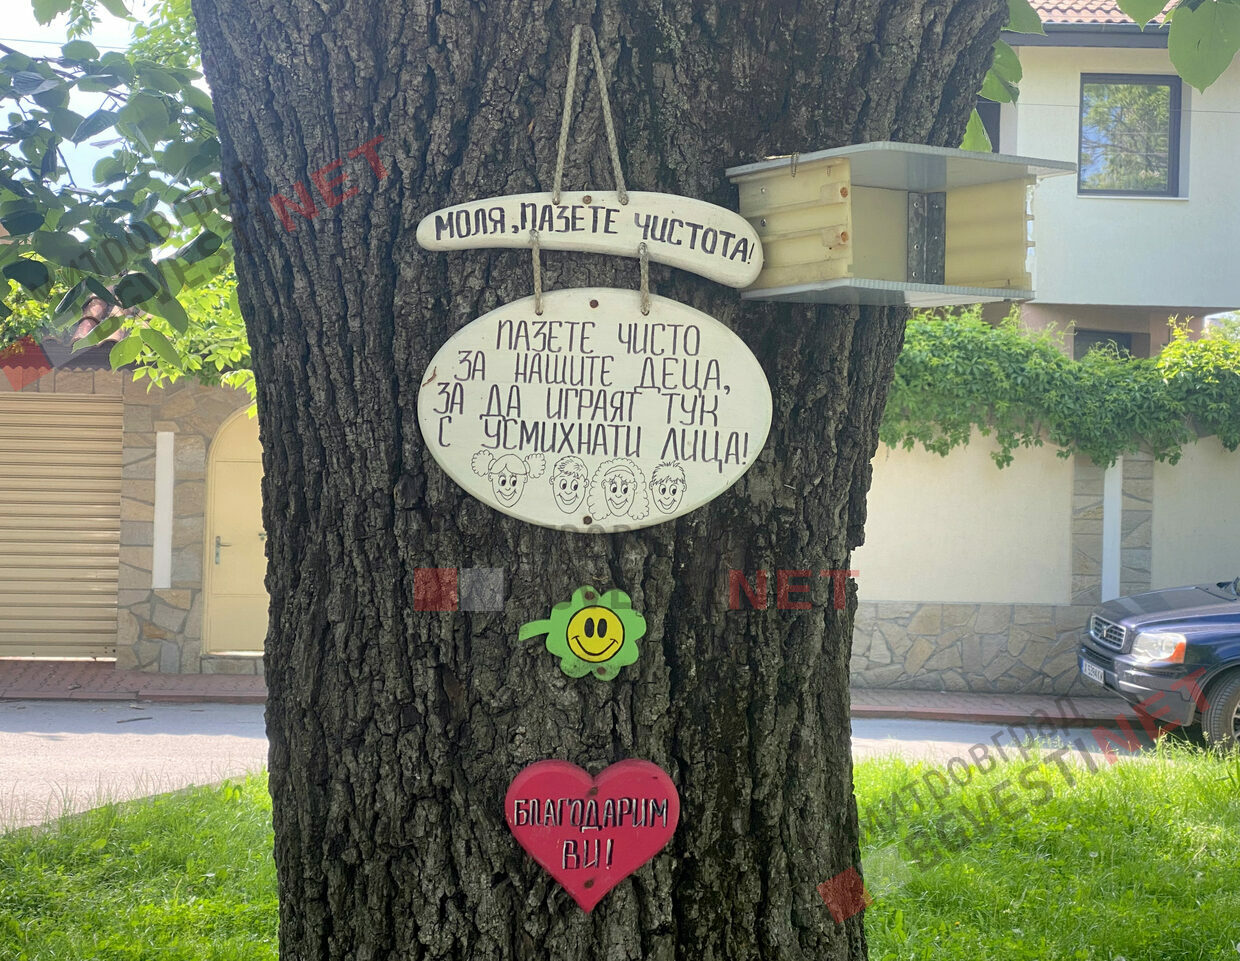 МОЛЯ, ПАЗЕТЕ ЧИСТОТА!
ПАЗЕТЕ ЧИСТО
ЗА НАШИТЕ ДЕЦА,
ЗА ДА ИГРАЯТ ТУК
С УСМИХНАТИ ЛИЦА!
БЛАГОДАРИМ
ВИ!
NET
NET
ИТРОВГРАД
BGVESTINET